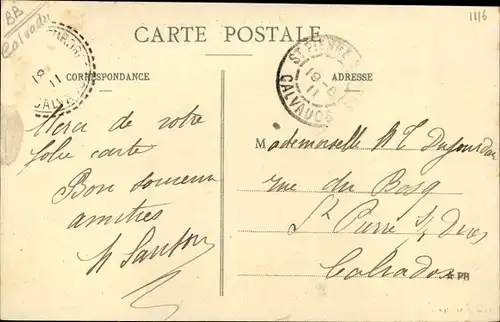 BB
Calvados
1116
CARTE POSTALE
CORRESPONDANCE
ADRESSE
ST PIERRE S
19-6
11
CALVADOS
18
11
CALVADOS
Merci de votre
jolie carte
Bon souvenir
amitiés
Mademoiselle
rue du Bosq
St Pierre s/ Dives
Calvados
PB